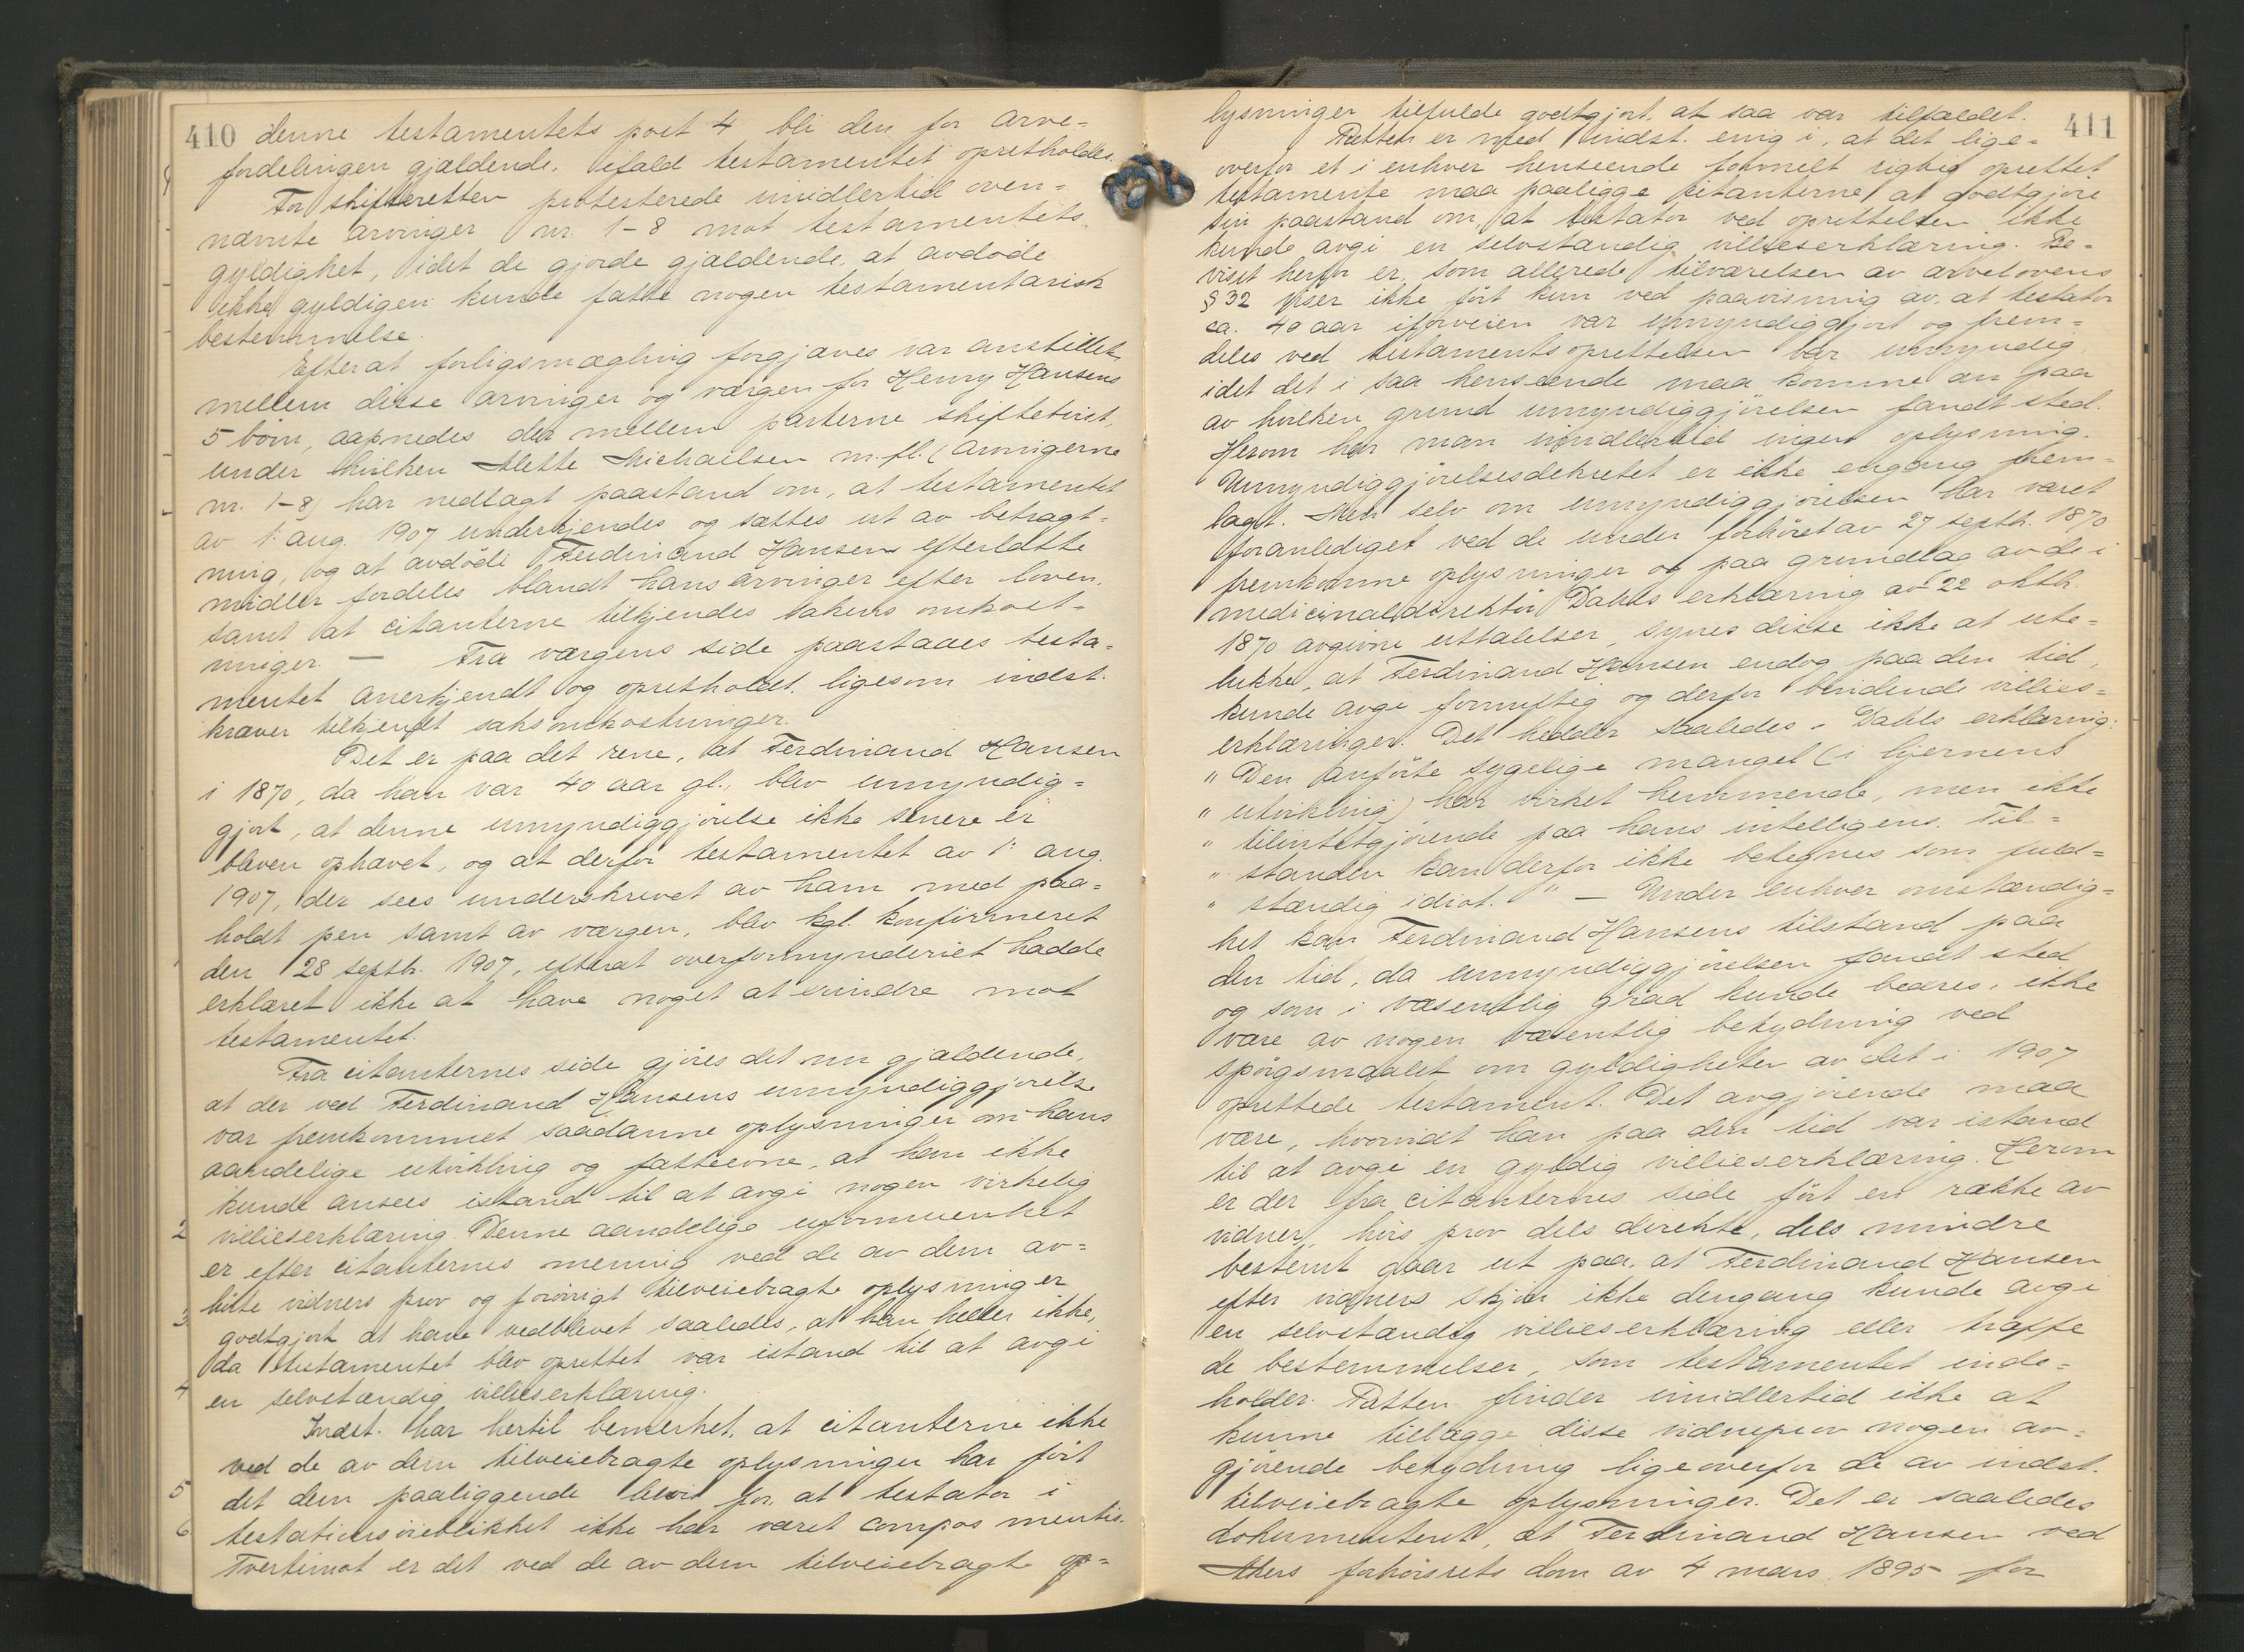 410 denne testamentets post 4 bli den for arve-
fordelingen gjældende, ifald testamentet opretholdes.
For skifteretten protesterede imidlertid oven-
nævnte arvinger nr. 1-8 mot testamentets
gyldighet, idet de gjorde gjældende, at avdøde
ikke gyldigen kunde fatte nogen testamentarisk
bestemmelse.
Efterat forligsmægling forgjæves var anstillet
mellem disse arvinger og værgen for Henry Hansens
5 børn, aapnedes der mellem parterne skiftetvist,
under hvilken Mette Michaelsen m. fl. (arvingerne
nr. 1-8) har nedlagt paastand om, at testamentet
av 1. aug. 1907 underkjendes og sættes ut av betragt-
ning, og at avdøde Ferdinand Hansens efterlatte
midler fordeles blandt hans arvinger efter loven,
samt at citanterne tilkjendes sakens omkost-
ninger. — Fra værgens side paastaaes testa-
mentet anerkjendt og opretholdt, ligesom indst.
kræver tilkjendt saksomkostninger.
Det er paa det rene, at Ferdinand Hansen
i 1870, da han var 40 aar gl., blev umyndig-
gjort, at denne umyndiggjørelse ikke senere er
bleven ophævet, og at derfor testamentet av 1. aug.
1907, der sees underskrevet av ham med paa-
holdt pen samt av værgen, blev kgl. konfirmeret
den 28 septb. 1907, efterat overformynderiet hadde
erklæret ikke at have noget at erindre mot
testamentet.
Fra citanternes side gjøres det nu gjældende,
at der ved Ferdinand Hansens umyndiggjørelse
var fremkommet saadanne oplysninger om hans
aandelige utvikling og fatteevne, at han ikke
kunde ansees istand til at avgi nogen virkelig
2 villieserklæring. Denne aandelige uformuenhet
er efter citanternes mening ved de av dem av-
hørte vidners prov og forøvrigt tilveiebragte oplysninger
3 godtgjort at have vedblevet saaledes, at han heller ikke,
da testamentet blev oprettet var istand til at avgi
4 en selvstændig villieserklæring.
Indst. har hertil bemerket, at citanterne ikke
ved de av dem tilveiebragte oplysninger har ført
5 det dem paaliggende bevis for, at testator i
6 testationsøieblikket ikke har været compos mentis.
Tvertimot er det ved de av dem tilveiebragte op-
lysninger tilfulde godtgjort, at saa var tilfældet. 411
Retten er med indst. enig i, at det lige-
overfor et i enhver henseende formelt rigtig oprettet
testamente maa paaligge citanterne at godtgjøre
sin paastand om, at testator ved oprettelsen ikke
kunde avgi en selvstændig villieserklæring. Be-
viset herfor er, som allerede tilværelsen av arvelovens
§ 32 viser ikke ført kun ved paavisning av, at testator
ca. 40 aar iforveien var umyndiggjort og frem-
deles ved testamentsoprettelsen var umyndig,
idet det i saa henseende maa komme an paa
av hvilken grund umyndiggjørelsen fandt sted.
Herom har man imidlertid ingen oplysning.
Umyndiggjørelsesdekretet er ikke engang frem-
lagt. Men selv om umyndiggjørelsen har været
foranlediget ved de under forhøret av 27 septb. 1870
fremkomne oplysninger og paa grundlag av de i
medicinaldirektør Dahls erklæring av 22 oktb.
1870 avgivne uttalelser, synes disse ikke at ute-
lukke, at Ferdinand Hansen endog paa den tid,
kunde avgi fornuftig og derfor bindende villies-
erklæringer. Det hedder saaledes i Dahls erklæring:
" Den anførte sygelige mangel (i hjernens
" utvikling) har virket hemmende, men ikke
" tilintetgjørende paa hans intelligens. Til-
" standen kan derfor ikke betegnes som fuld-
" stændig idiot." — Under enhver omstændig-
het kan Ferdinand Hansens tilstand paa
den tid, da umyndiggjørelsen fandt sted
og som i væsentlig grad kunde bedres, ikke
være av nogen væsentlig betydning ved
spørgsmaalet om gyldigheten av det i 1907
oprettede testament. Det avgjørende maa
være, hvorvidt han paa den tid var istand
til at avgi en gyldig villieserklæring. Herom
er der fra citanternes side ført en række av
vidner, hvis prov dels direkte, dels mindre
bestemt gaar ut paa, at Ferdinand Hansen
efter vidners skjøn ikke dengang kunde avgi
en selvstændig villieserklæring eller træffe
de bestemmelser, som testamentet inde-
holder. Retten finder imidlertid ikke at
kunne tillægge disse vidneprov nogen av-
gjørende betydning ligeoverfor de av indst.
tilveiebragte oplysninger. Det er saaledes
dokumenteret, at Ferdinand Hansen ved
Akers forhørsrets dom av 4 mars 1895 for